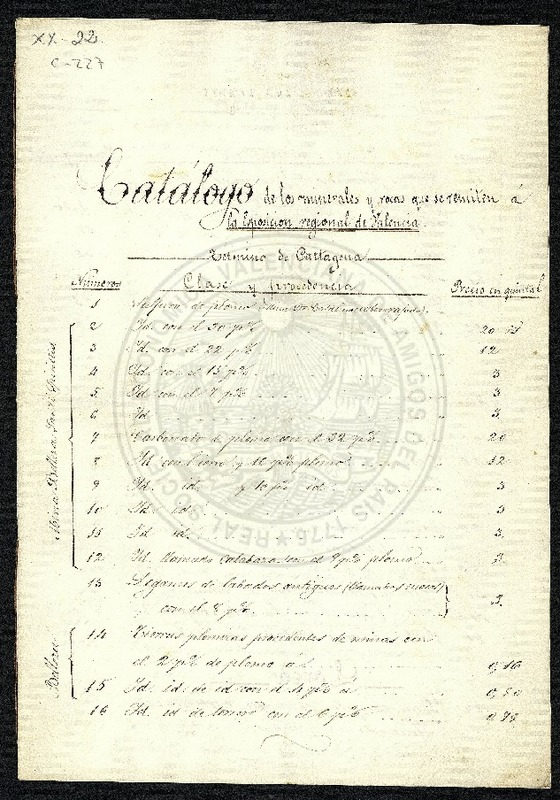 XX.-22.
C-227
Catálogo de los minerales y rocas que se remiten á
la Exposicion regional de Valencia.
Termino de Cartagena
Numeros Clase y procedencia Precio en quintal
1 Sulfuro de plomo
2 Id. con el 30 p% 20
3 Id. con el 22 p% 12
4 Id. con el 15 p% 3
5 Id. con el 7 p% 3
6 Id. 3
7 Carbonato de plomo con el 32 p% 20
8 Id. con hierro y 12 p% plomo 12
9 Id. id. y 10 p% id. 3
10 Id. id. 3
11 Id. id. 3
12 Id. llamado calabaza con el 8 p% plomo 3
13 de labados antiguos
con el 8 p%. 3.
14 Tierras plomizas procedentes de minas con
el 2 p% de plomo á 0,16
15 Id. id. de id con el 4 p% á 0,50
16 Id. id de con el 6 p% 0,75
Mina
REAL SOCIEDAD VALENCIANA DE AMIGOS DEL PAIS 1776